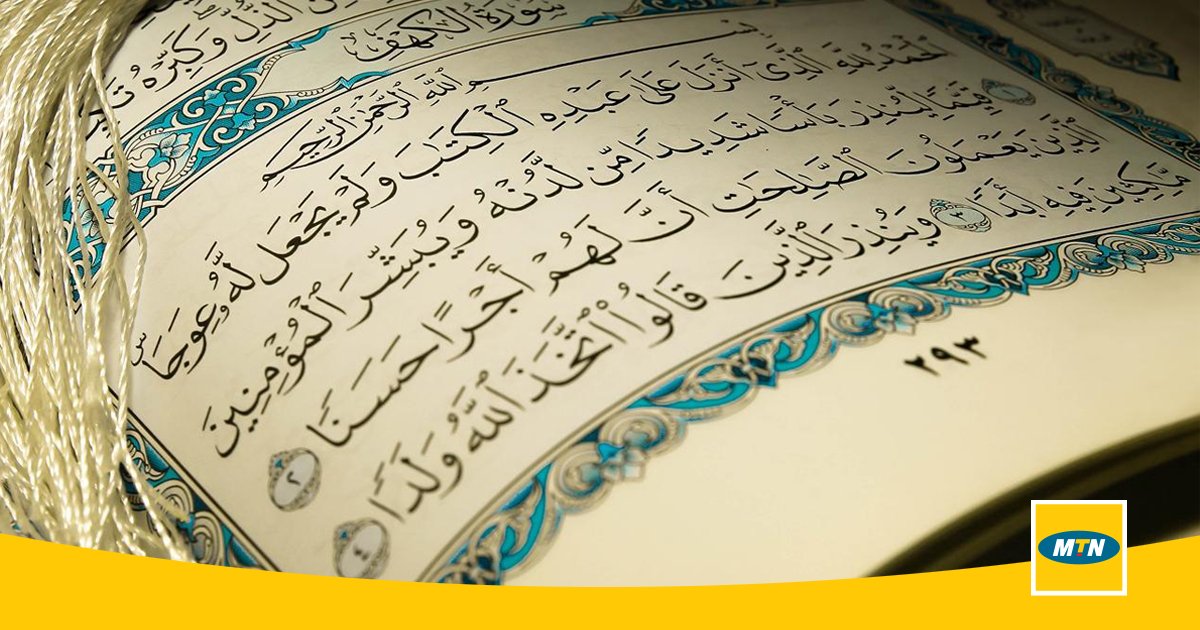 ٱلذُّلِّ وَكَبِّرْهُ
سُورَةُ ٱلْكَهْفِ
بِسْمِ ٱللَّهِ ٱلرَّحْمَٰنِ ٱلرَّحِيمِ
ٱلْحَمْدُ لِلَّهِ ٱلَّذِىٓ أَنزَلَ عَلَىٰ عَبْدِهِ ٱلْكِتَٰبَ وَلَمْ يَجْعَل لَّهُۥ عِوَجَاۜ
١ قَيِّمًا لِّيُنذِرَ بَأْسًا شَدِيدًا مِّن لَّدُنْهُ وَيُبَشِّرَ ٱلْمُؤْمِنِينَ
ٱلَّذِينَ يَعْمَلُونَ ٱلصَّٰلِحَٰتِ أَنَّ لَهُمْ أَجْرًا حَسَنًا ٢
مَّٰكِثِينَ فِيهِ أَبَدًا ٣ وَيُنذِرَ ٱلَّذِينَ قَالُوا۟ ٱتَّخَذَ ٱللَّهُ وَلَدًا ٤
٢٩٣
MTN